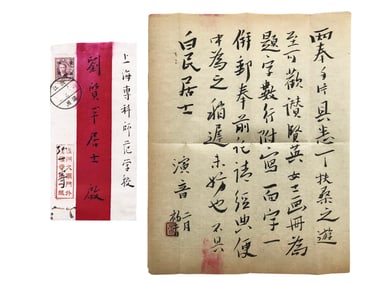 上海專科師范学校
劉質平居士 啟
两奉手片具悉一一扶桑之遊
至可歡讚賢英女士画冊為
題字數行附寫一面字一
併郵奉前記請經典便
中為之稍遲未妨也不具
白民居士
演音
二月